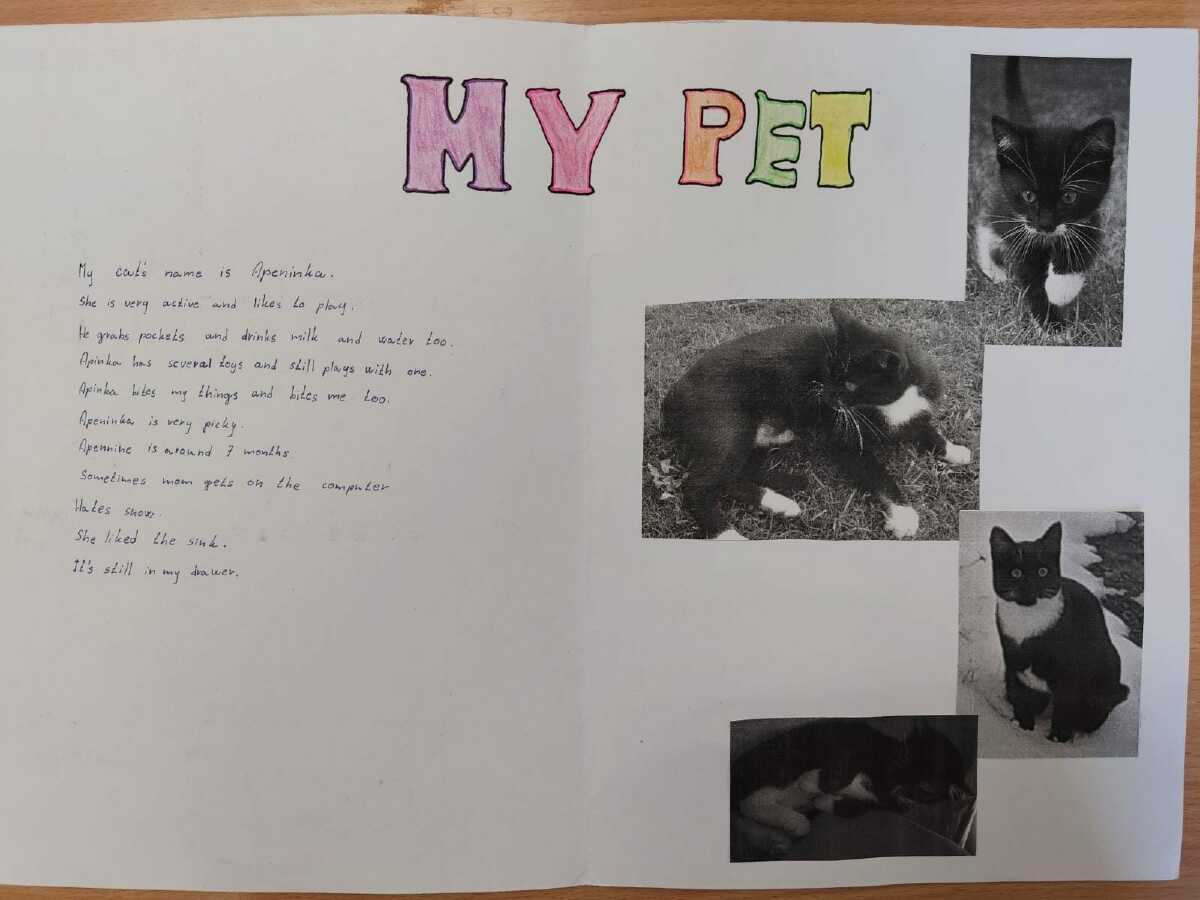 MY PET
My cat's name is Apeninka.
She is very active and likes to play.
He grabs pockets and drinks milk and water too.
Apinka has several toys and still plays with one.
Apinka bites my things and bites me too.
Apeninka is very picky.
Apennine is around 7 months
Sometimes mom gets on the computer
Hates snow.
She liked the sink.
It's still in my drawer.